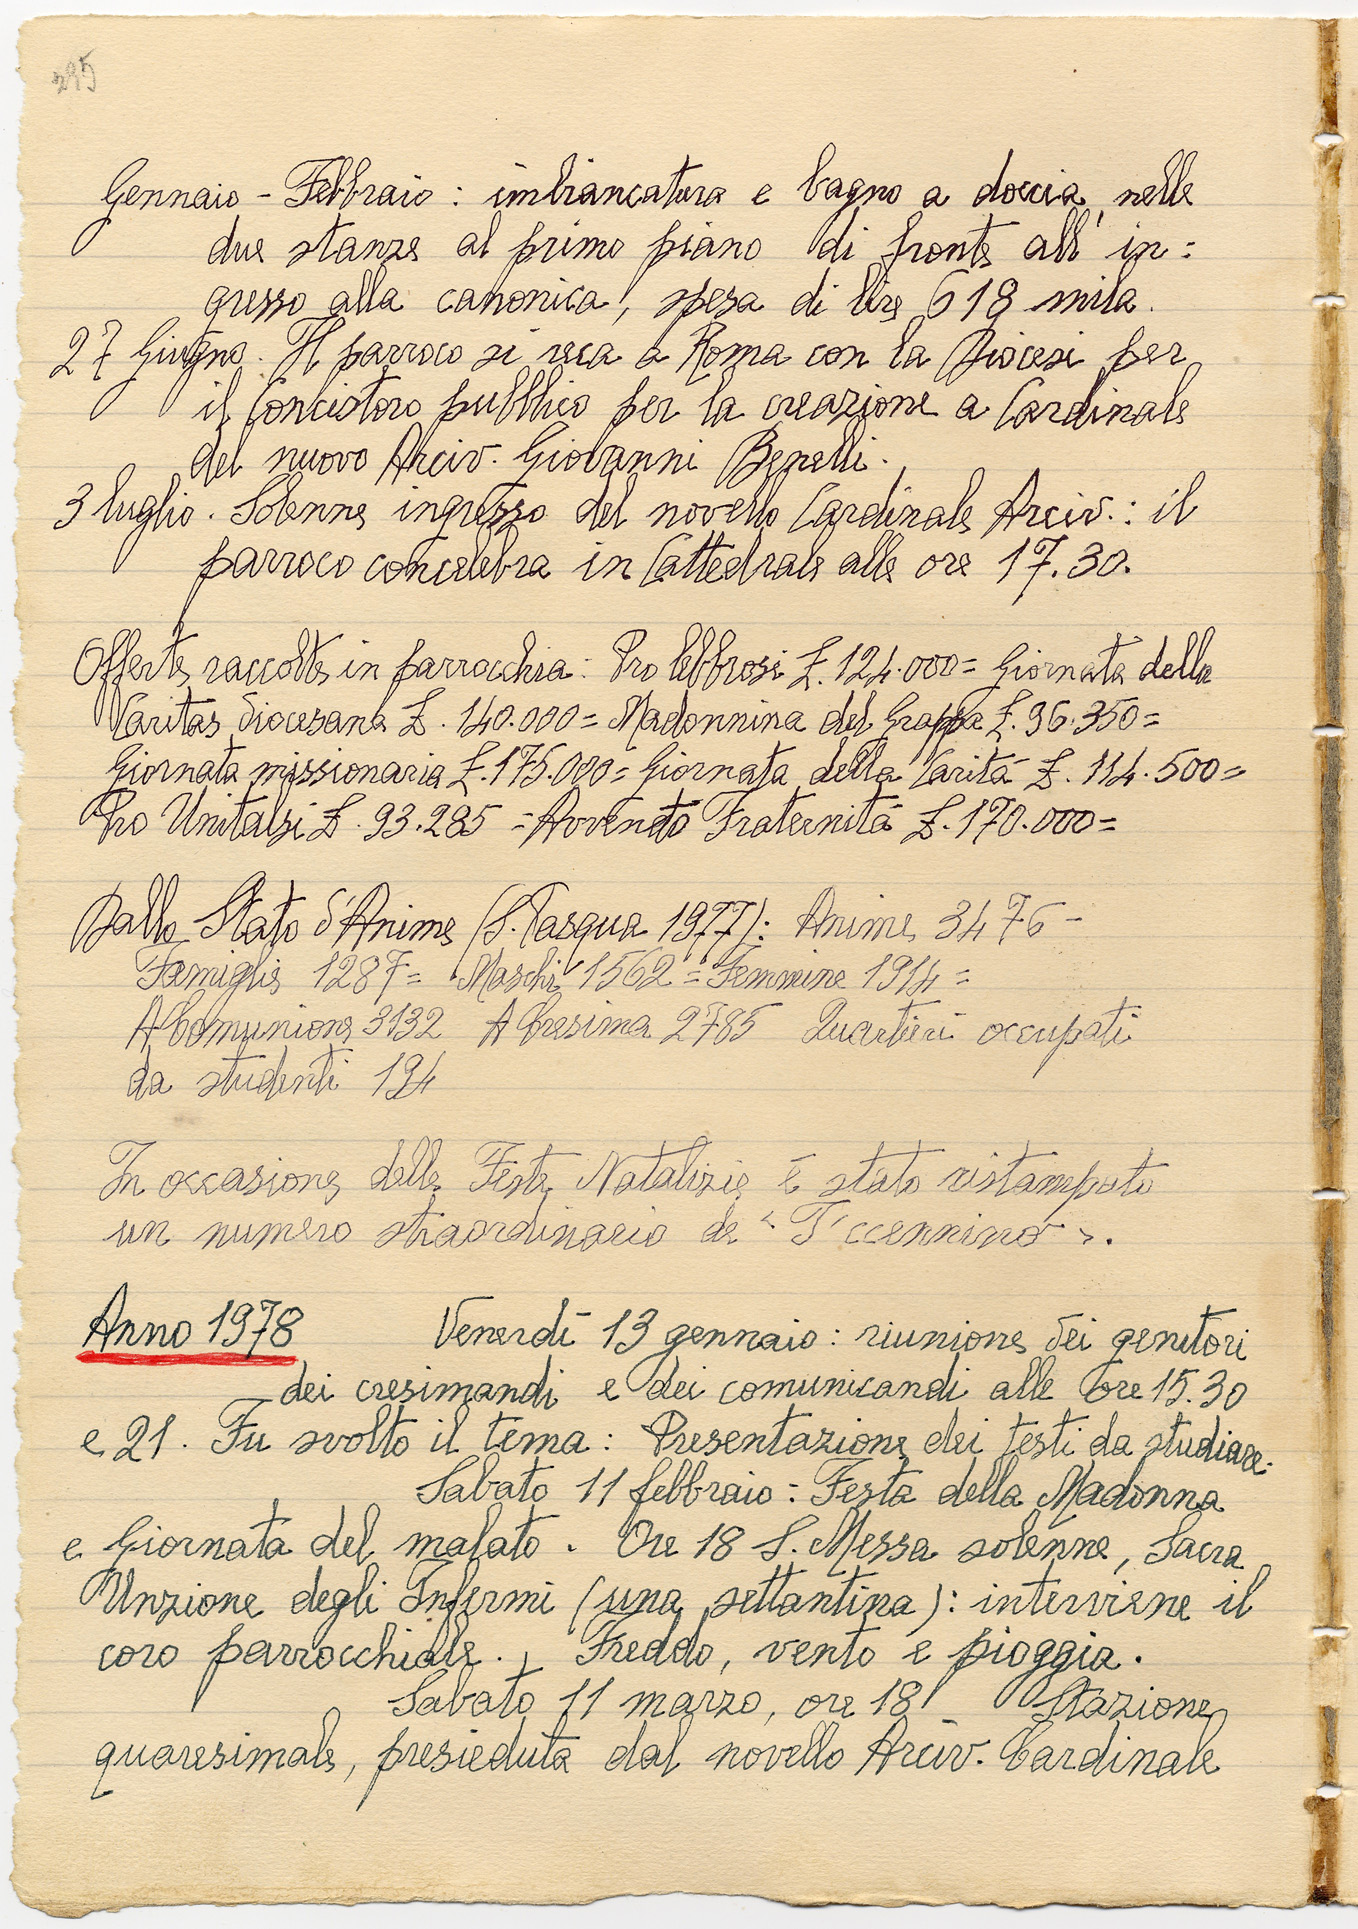 295
Gennaio - Febbraio : imbiancatura e bagno a doccia, nelle
due stanze al primo piano di fronte all' in=
gresso alla canonica, spesa di lire 618 mila.
27 Giugno. Il parroco si reca a Roma con la Diocesi per
il Concistoro pubblico per la creazione a Cardinale
del nuovo Arciv. Giovanni Benelli.
3 luglio. Solenne ingresso del novello Cardinale Arciv.: il
parroco concelebra in Cattedrale alle ore 17.30.
Offerte raccolte in parrocchia: Pro lebbrosi £. 124.000= Giornata della
Caritas diocesana £. 140.000= Madonnina del Grappa £. 96.350=
Giornata missionaria £. 175.000= Giornata della Carità £. 114.500=
Pro Unitalsi £. 93.285 = Avvento Fraternità £. 170.000=
Dallo Stato d'Anime (S. Pasqua 1977): Anime 3476-
Famiglie 1287= Maschi 1562= Femmine 1914=
A Comunione 3132 A Cresima 2785 Quartieri occupati
da studenti 194
In occasione delle Feste Natalizie è stato ristampato
un numero straordinario de "I' ccennino".
Anno 1978 Venerdì 13 gennaio: riunione dei genitori
dei cresimandi e dei comunicandi alle ore 15.30
e 21. Fu svolto il tema: Presentazione dei testi da studiare.
Sabato 11 febbraio: Festa della Madonna
e Giornata del malato. Ore 18 S. Messa solenne, Sacra
Unzione degli Infermi (una settantina): interviene il
coro parrocchiale. Freddo, vento e pioggia.
Sabato 11 marzo, ore 18 Stazione
quaresimale, presieduta dal novello Arciv. Cardinale